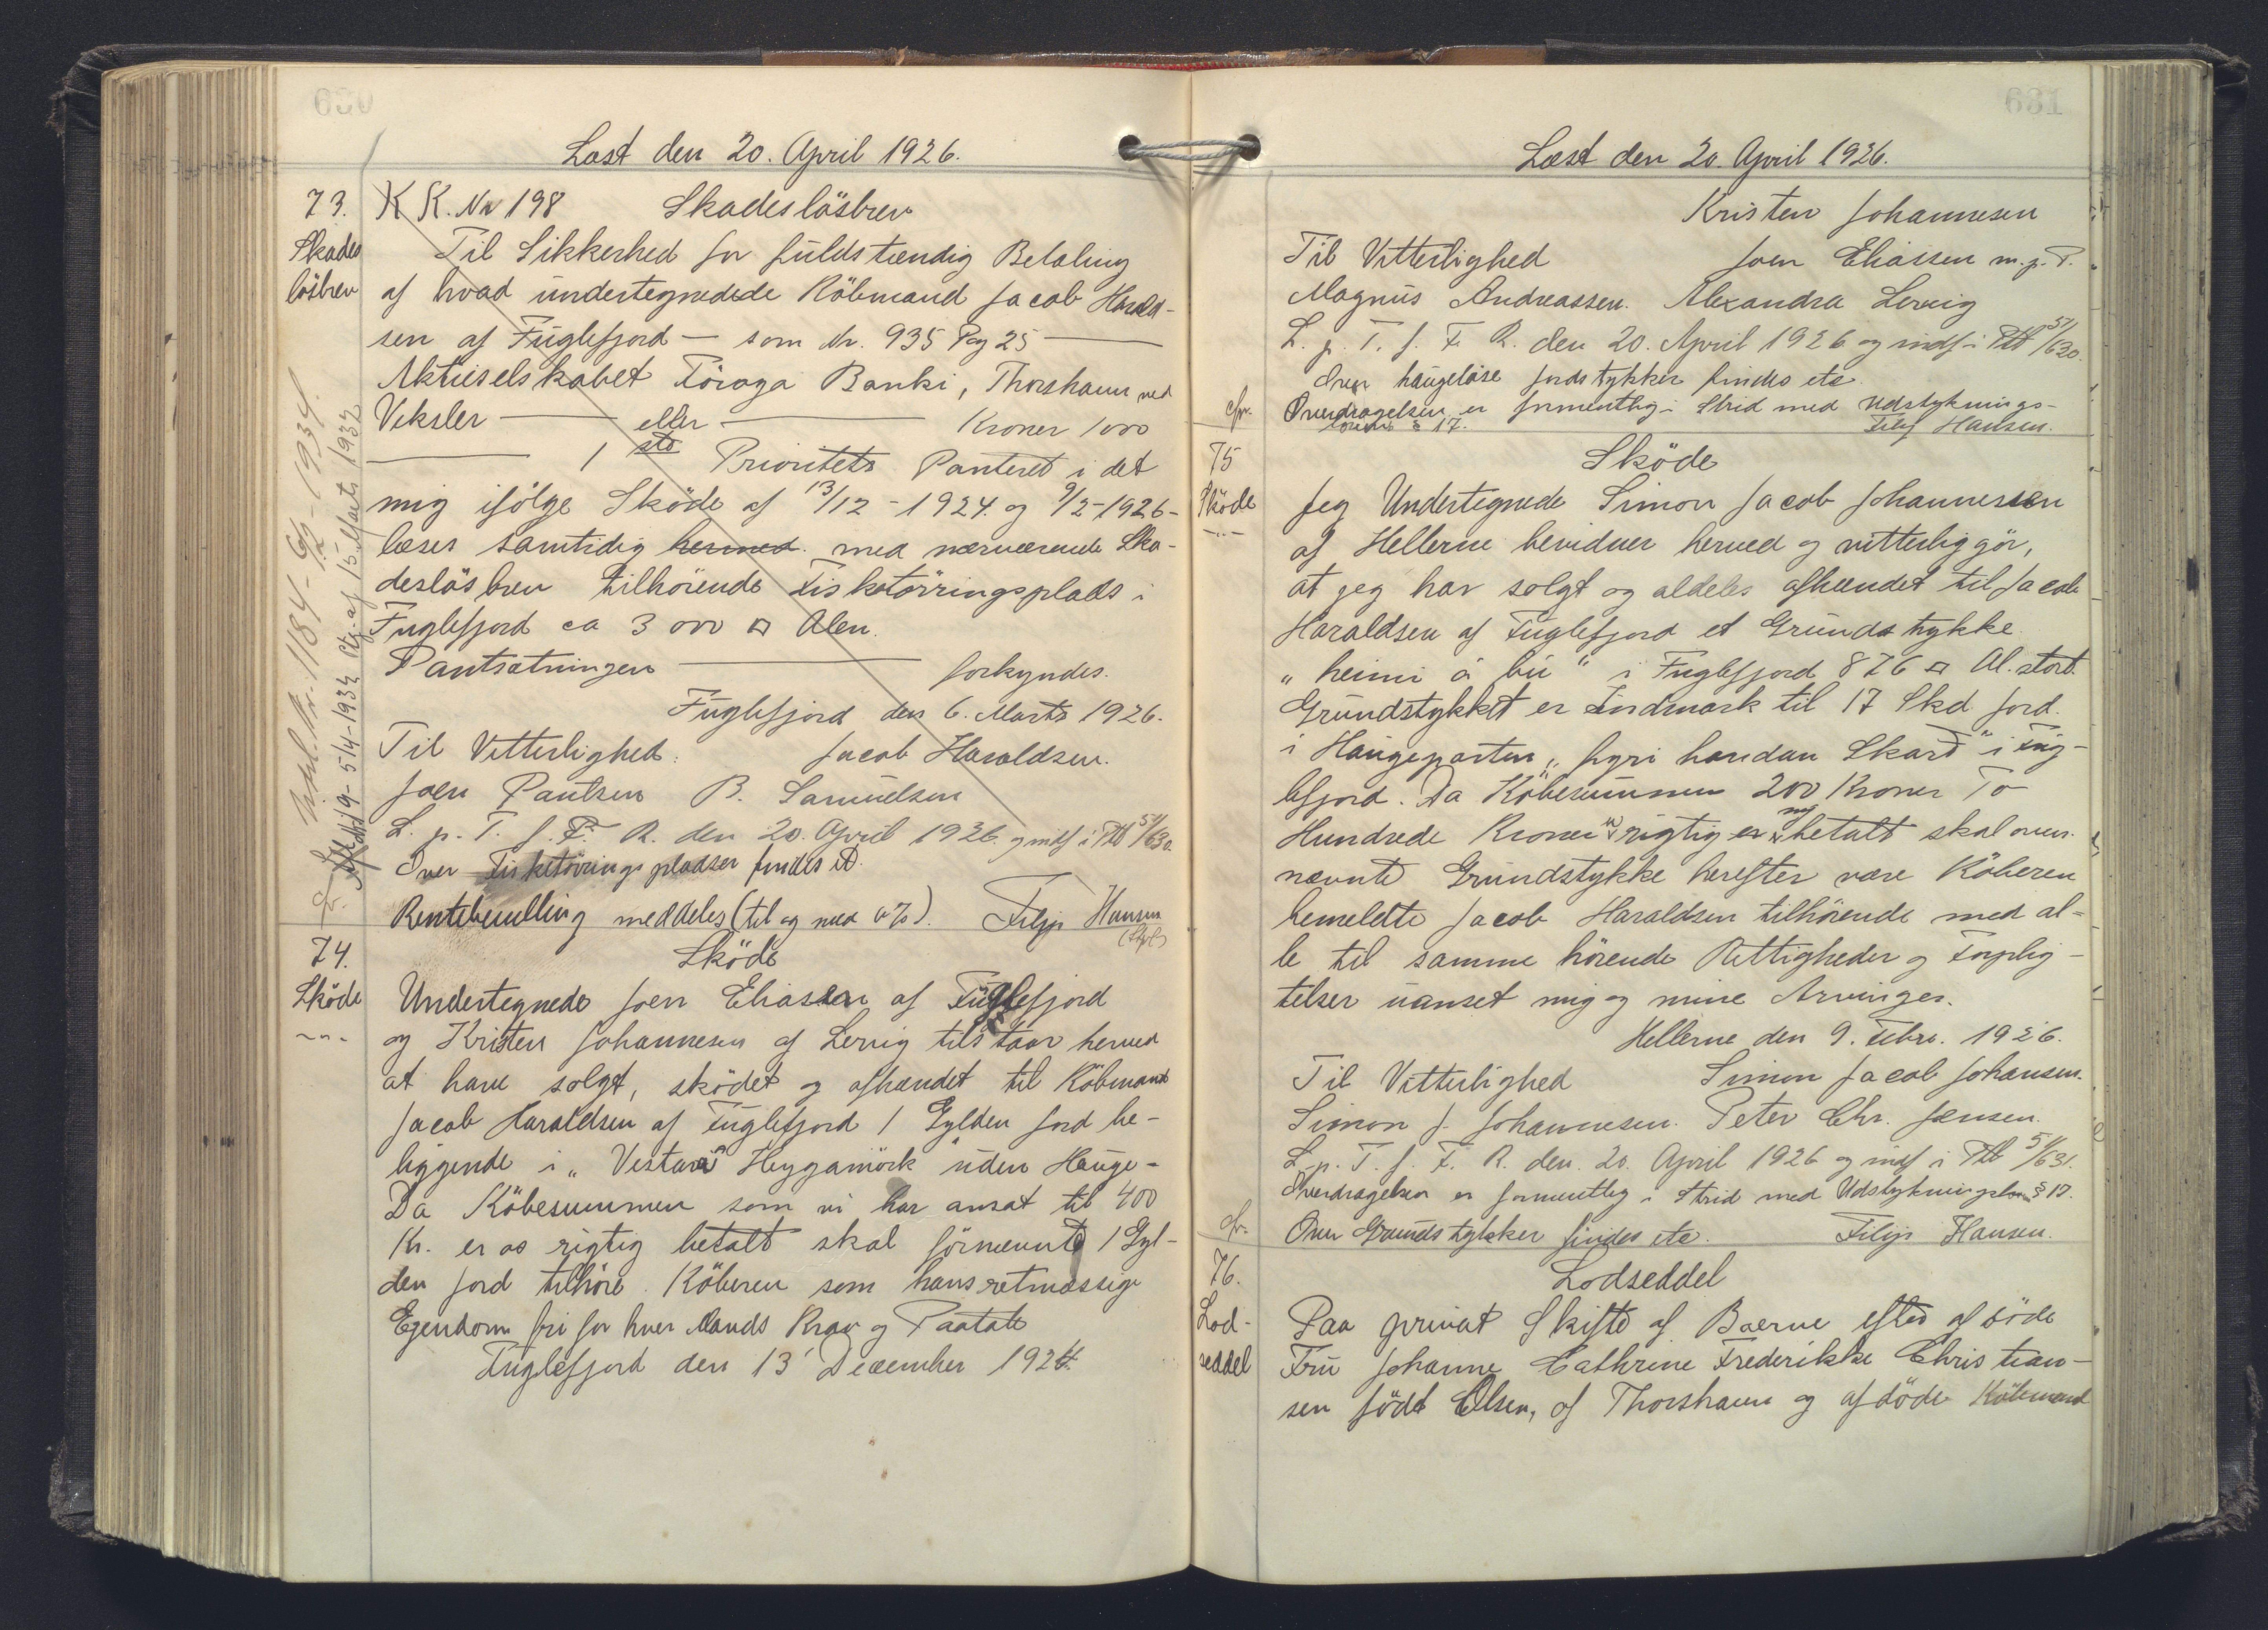 630
Læst den 20. April 1926.
73.
Skades
lösbrev
K K. No 198 Skadeslösbrev
Til Sikkerhed for fuldstændig Betaling
af hvad undertegnedede Köbmand Jacob Harald-
sen af Fuglefjord — som Nr. 935 Pag 25 —
Aktieselskabet Föroya Banki, Thorshavn ved
Veksler — eller — Kroner 1000
— 1ste Prioritets Panteret i det
mig ifölge Sköde af 13/12 - 1924 og 9/2-1926-
læses samtidig hermed med nærværende Ska-
deslösbrev tilhörende Fisketörringsplads i
Fuglefjord ca 3000 □ Alen.
Pantsætningen — forkyndes.
Fuglefjord den 6. Marts 1926.
Til Vitterlighed: Jacob Haraldsen.
Joen Poulsen B. Samuelsen
L. p. T. f. F. R. den 20. April 1926 og indf i Ptb 51/630.
Over Fisketörringspladser findes et.
Rentebevilling meddeles (til og med 6%). Filip Hansen
74.
Sköde
Sköde
Undertegnede Joen Eliassen af Fuglefjord
og Kristen Johannesen af Lervig tilstaar herved
at have solgt, sködet og afhændet til Köbmand
Jacob Haraldsen af Fuglefjord 1 Gylden Jord be-
liggende i „Vestara Heygamörk" uden Hauge-
Da Köbesummen som vi har ansat til 400
Kr. er os rigtig betalt skal förnævnte 1 Gyl-
den Jord tilhöre Köberen som hans retmæssige
Ejendom fri for hver Mands Krav og Paatale
Fuglefjord den 13 December 1924.
631
Læst den 20. April 1926.
Kristen Johannesen
Til Vitterlighed Joen Eliassen m. p. P.
Magnus Andreassen. Alexandra Lervig
L. p. T. f. F. R. den 20. April 1926 og indf i Ptb 51/630.
Over haugelöse Jordstykker findes etc.
cfr. Overdragelsen er formentlig i Strid med Udstyknings-
lovens § 17. Filip Hansen.
75
Sköde
Sköde
Jeg Undertegnede Simon Jacob Johannessen
af Hellerne bevidner herved og vitterliggör,
at jeg har solgt og aldeles afhændet til Jacob
Haraldsen af Fuglefjord et Grundstykke
„heimi á bú" i Fuglefjord 876 □ Al. stort.
Grundstykket er Indmark til 17 Skd Jord.
i Haugeparten „fyri handan Skarð" i Fug-
lefjord. Da Köbesummen 200 Kroner To
Hundrede Kroner rigtig er mig betalt skal oven-
nævnte Grundstykke herefter være Köberen
bemeldte Jacob Haraldsen tilhörende med al-
le til samme hörende Rettigheder og Forplig-
telser uanset mig og mine Arvinger.
Hellerne den 9. Febr. 1926.
Til Vitterlighed Simon Jacob Johansen.
Simon J. Johannesen. Peter Chr. Jensen.
L. p. T. f. F. R. den 20. April 1926 og indf i Ptb 51/631.
Overdragelsen er formentlig i Strid med Udstykningslov § 17.
cfr. Over Grundstykker findes etc. Filip Hansen.
76.
Lod-
seddel
Lodseddel
Paa privat Skifte af Boerne efter afdöde
Fru Johanne Cathrine Frederikke Christian-
sen födt Olsen, af Thorshavn og afdöde Köbmand